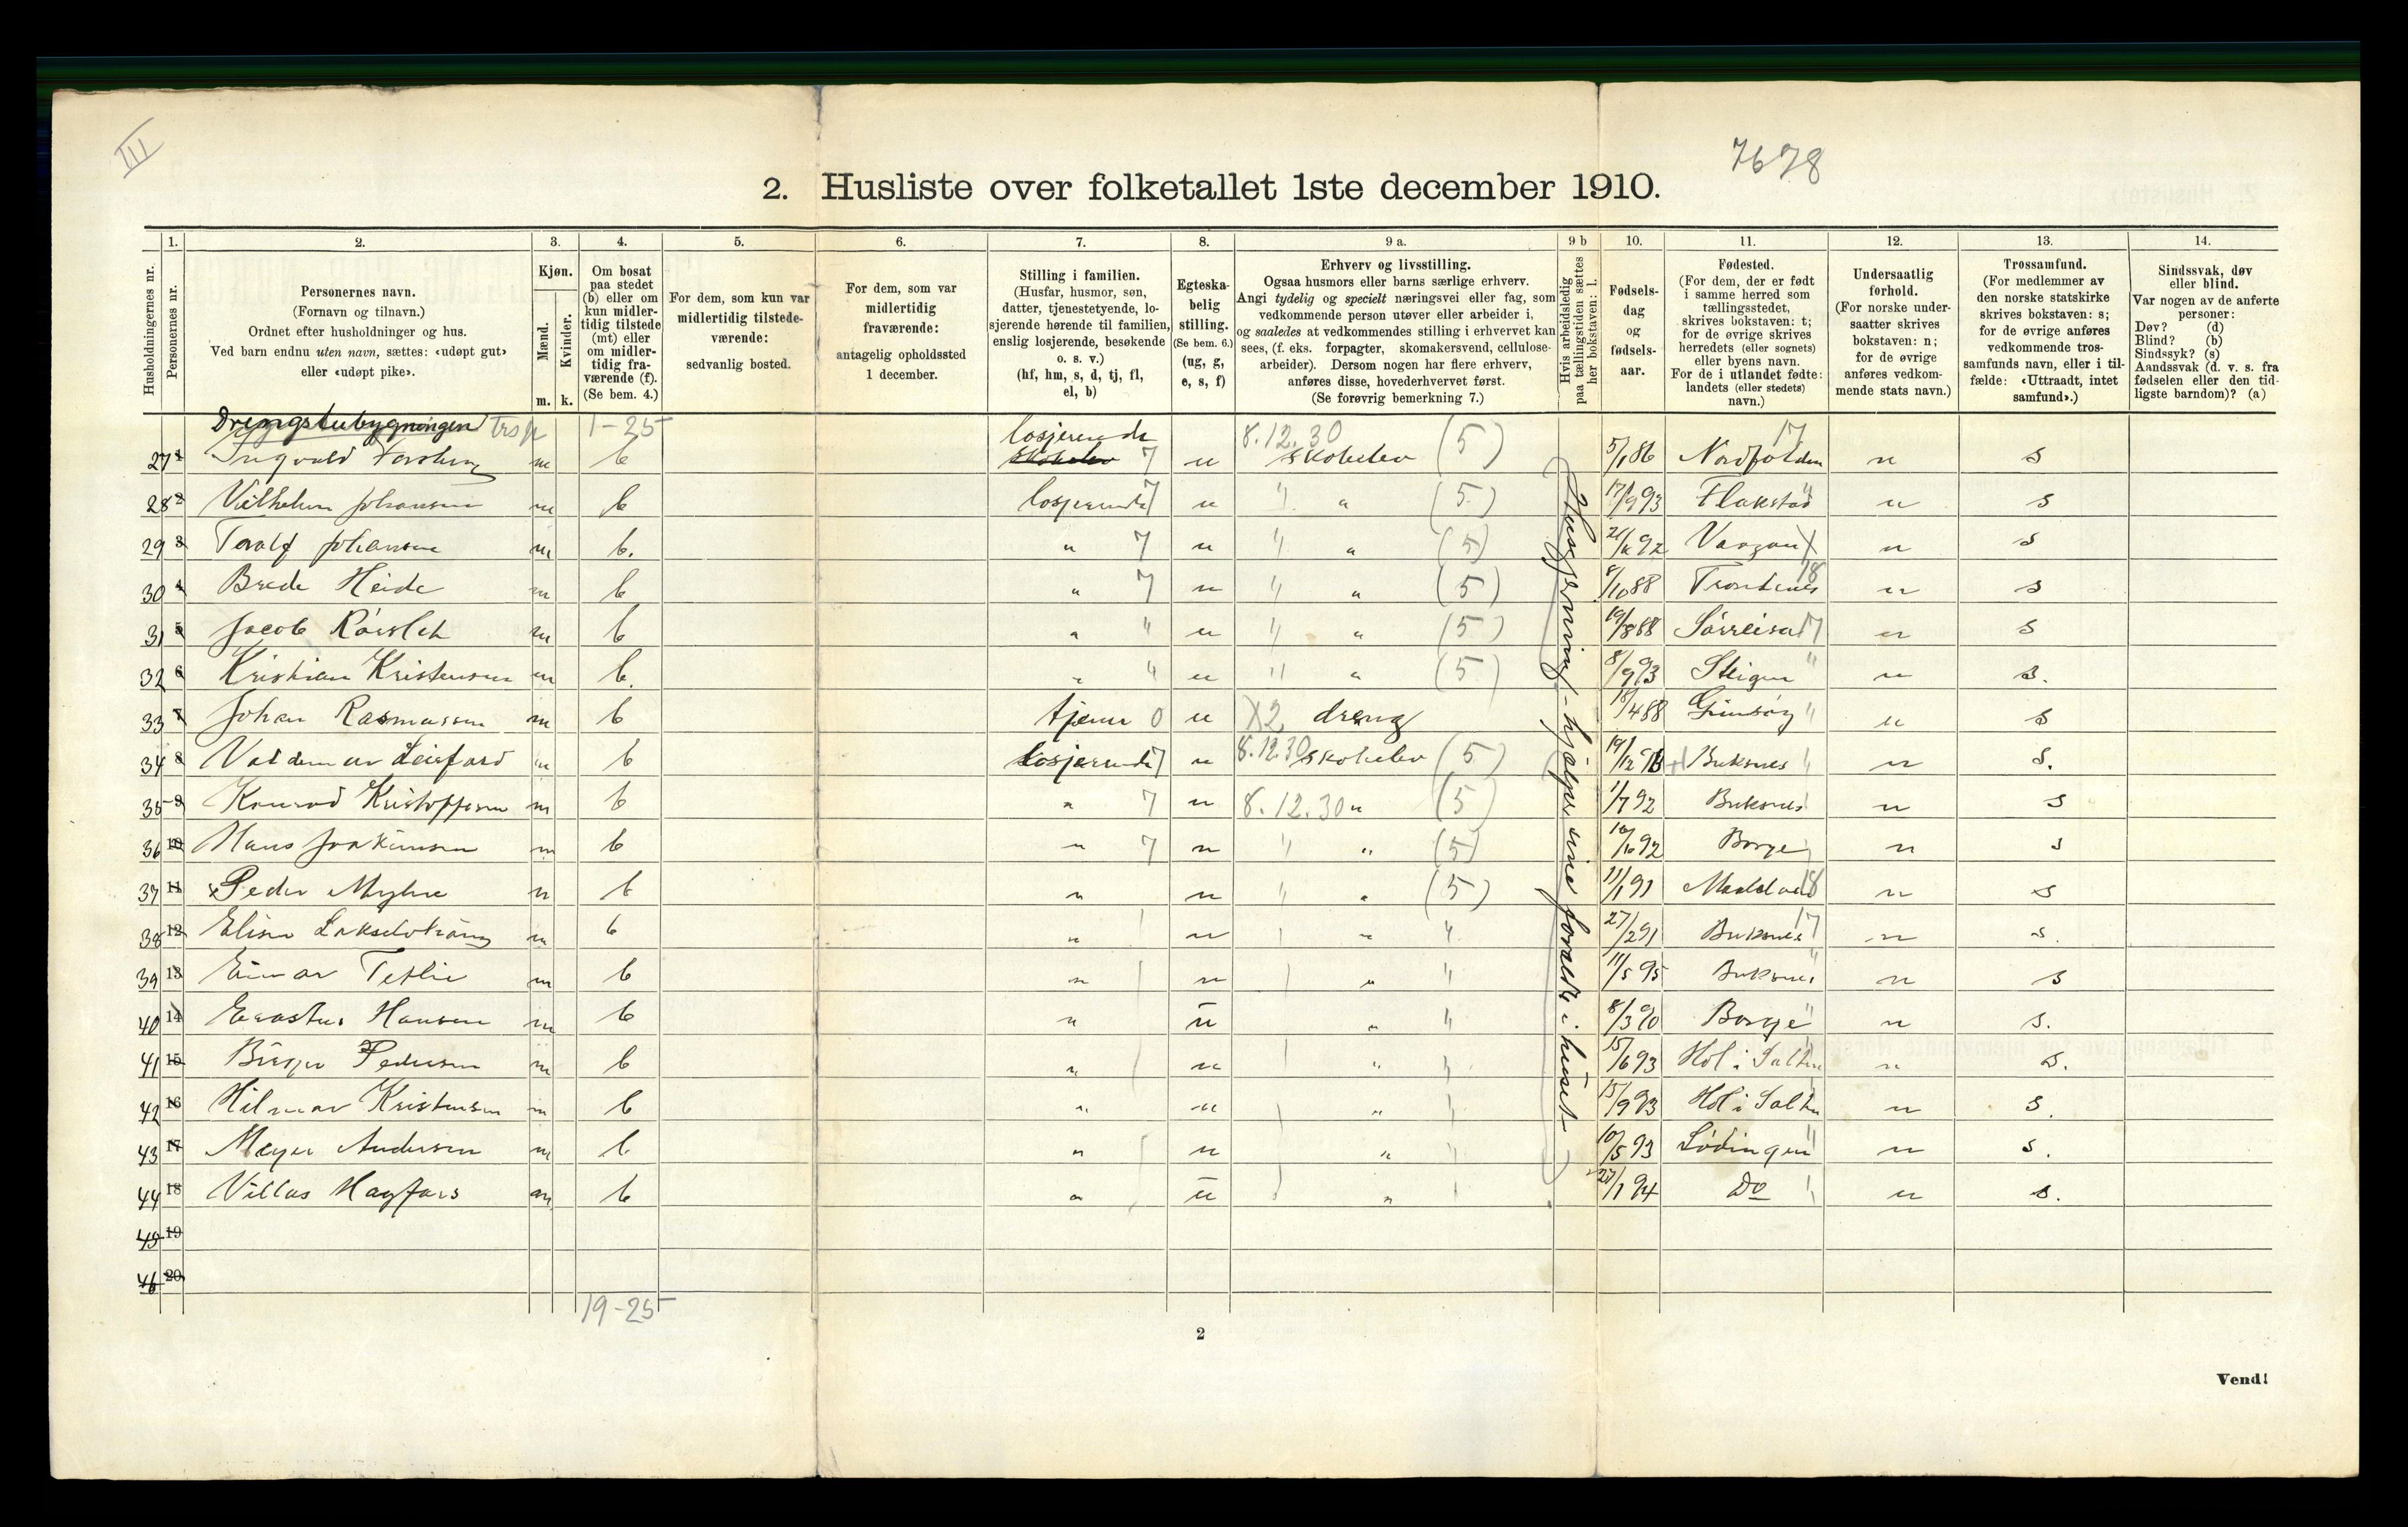 III
7678
2. Husliste over folketallet 1ste december 1910.
1. 2. 3. 4. 5. 6. 7. 8. 9 a. 9 b 10. 11. 12. 13. 14.
Husholdningernes nr.
Personernes nr.
Personernes navn.
(Fornavn og tilnavn.)
Ordnet efter husholdninger og hus.
Ved barn endnu uten navn, sættes: «udøpt gut»
eller «udøpt pike».
Kjøn.
Mænd.
Kvinder.
m. k.
Om bosat
paa stedet
(b) eller om
kun midler-
tidig tilstede
(mt) eller
om midler-
tidig fra-
værende (f).
(Se bem. 4.)
For dem, som kun var
midlertidig tilstede-
værende:
sedvanlig bosted.
For dem, som var
midlertidig
fraværende:
antagelig opholdssted
1 december.
Stilling i familien.
(Husfar, husmor, søn,
datter, tjenestetyende, lo-
sjerende hørende til familien,
enslig losjerende, besøkende
o. s. v.)
(hf, hm, s, d, tj, fl,
el, b)
Egteska-
belig
stilling.
(Se bem. 6.)
(ug, g,
e, s, f)
Erhverv og livsstilling.
Ogsaa husmors eller barns særlige erhverv.
Angi tydelig og specielt næringsvei eller fag, som
vedkommende person utøver eller arbeider i,
og saaledes at vedkommendes stilling i erhvervet kan
sees, (f. eks. forpagter, skomakersvend, cellulose-
arbeider). Dersom nogen har flere erhverv,
anføres disse, hovederhvervet først.
(Se forøvrig bemerkning 7.)
Hvis arbeidsledig
paa tællingstiden sættes
her bokstaven: l.
Fødsels-
dag
og
fødsels-
aar.
Fødested.
(For dem, der er født
i samme herred som
tællingsstedet,
skrives bokstaven: t;
for de øvrige skrives
herredets (eller sognets)
eller byens navn.
For de i utlandet fødte:
landets (eller stedets)
navn.)
Undersaatlig
forhold.
(For norske under-
saatter skrives
bokstaven: n;
for de øvrige
anføres vedkom-
mende stats navn.)
Trossamfund.
(For medlemmer av
den norske statskirke
skrives bokstaven: s;
for de øvrige anføres
vedkommende tros-
samfunds navn, eller i til-
fælde: «Uttraadt, intet
samfund».)
Sindssvak, døv
eller blind.
Var nogen av de anførte
personer:
Døv? (d)
Blind? (b)
Sindssyk? (s)
Aandssvak (d. v. s. fra
fødselen eller den tid-
ligste barndom)? (a)
Drengstubygningen 1-25 losjerende 8.12.30 17
27 1 Ingvald m b 7 u skoleelev (5) 5/1 86 Nordfolden n s
28 2 Vilhelm Johansen m b losjerende 7 u " " (5) 17/9 93 Flakstad " n s
29 3 Toralf Johansen m b. " 7 u " " (5) 92 Vaagan n s
30 4 Brede Heide m b " 7 u " " (5) 8/10 88 Trondenes 18 n s
31 5 Jacob m b " " u " " (5) 19/8 88 Sørreisa 17 n s
32 6 Kristian Kristensen m b. " " u " " (5) 8/9 93 Steigen " n s.
33 7 Johan Rasmussen m b tjener 0 u X2 dreng 18/4 88 Gimsøy " n s
34 8 Valdemar Leifard m b losjerende 7 u 8.12.30 skoleelev (5) 19/12 Buksnes " n s.
35 9 Konrad Kristoffersen m b " 7 u 8.12.30 " (5) 1/7 92 Buksnes n s
36 10 Hans Joakimsen m b " 7 u " " (5) 92 Borge n s
37 11 Peder Myhre m b " u " " (5) 11/1 91 18 n s
38 12 m b " u " " 27/2 91 Buksnes 17 n s.
39 13 Einar Teflie m b " u " " 11/5 95 Buksnes " n s
40 14 Erastus Hansen m b " u " " 8/3 90 Borge " n s.
41 15 Birger Pedersen m b " u " " 15/6 93 Hol i Salten n s.
42 16 Hilmar Kristensen m b " u " " 15/9 93 Hol i Salten n s.
43 17 Meyer Andersen m b. " u " " 10/5 93 Lødingen " n s.
44 18 Villas Hagfors m b " u " " 1 94 Do n s.
45 19
46 20
Husgjerning - hjælper sine forældre i huset
19-25
2
Vend!